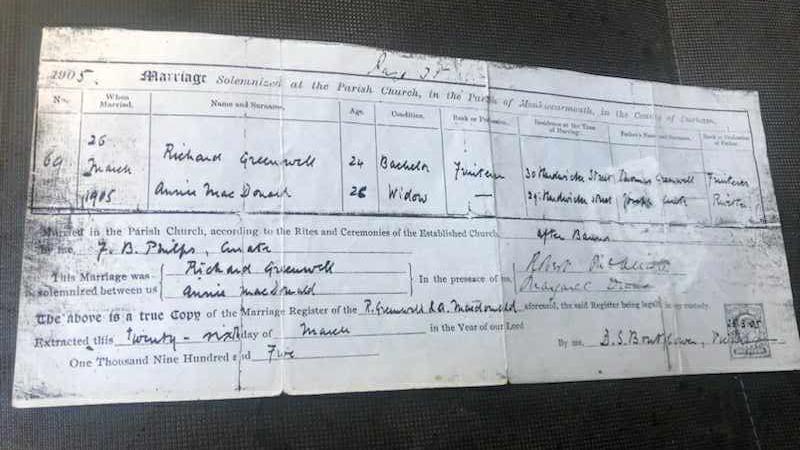 Page
1905. Marriage Solemnized at the Parish Church, in the Parish of Monkwearmouth, in the County of Durham.
No. When Married. Name and Surname. Age. Condition. Rank or Profession. Residence at the Time of Marriage. Father's Name and Surname. Rank or Profession of Father.
69 26 March 1905
Richard Greenwell 24 Bachelor 30 Hardwicke Street Thomas Greenwell
Annie MacDonald 26 Widow — 29 Hardwicke Street Joseph
Married in the Parish Church, according to the Rites and Ceremonies of the Established Church, after Banns
by me, F. B. Philps, Curate
This Marriage was solemnized between us { Richard Greenwell Annie MacDonald } In the presence of us, { Robert Margaret
The above is a true Copy of the Marriage Register of the R. Greenwell & A. MacDonald aforesaid, the said Register being legally in my custody.
Extracted this twenty-sixth day of March in the Year of our Lord
One Thousand Nine Hundred and Five By me, D. S. Boutflower,
26.3.05